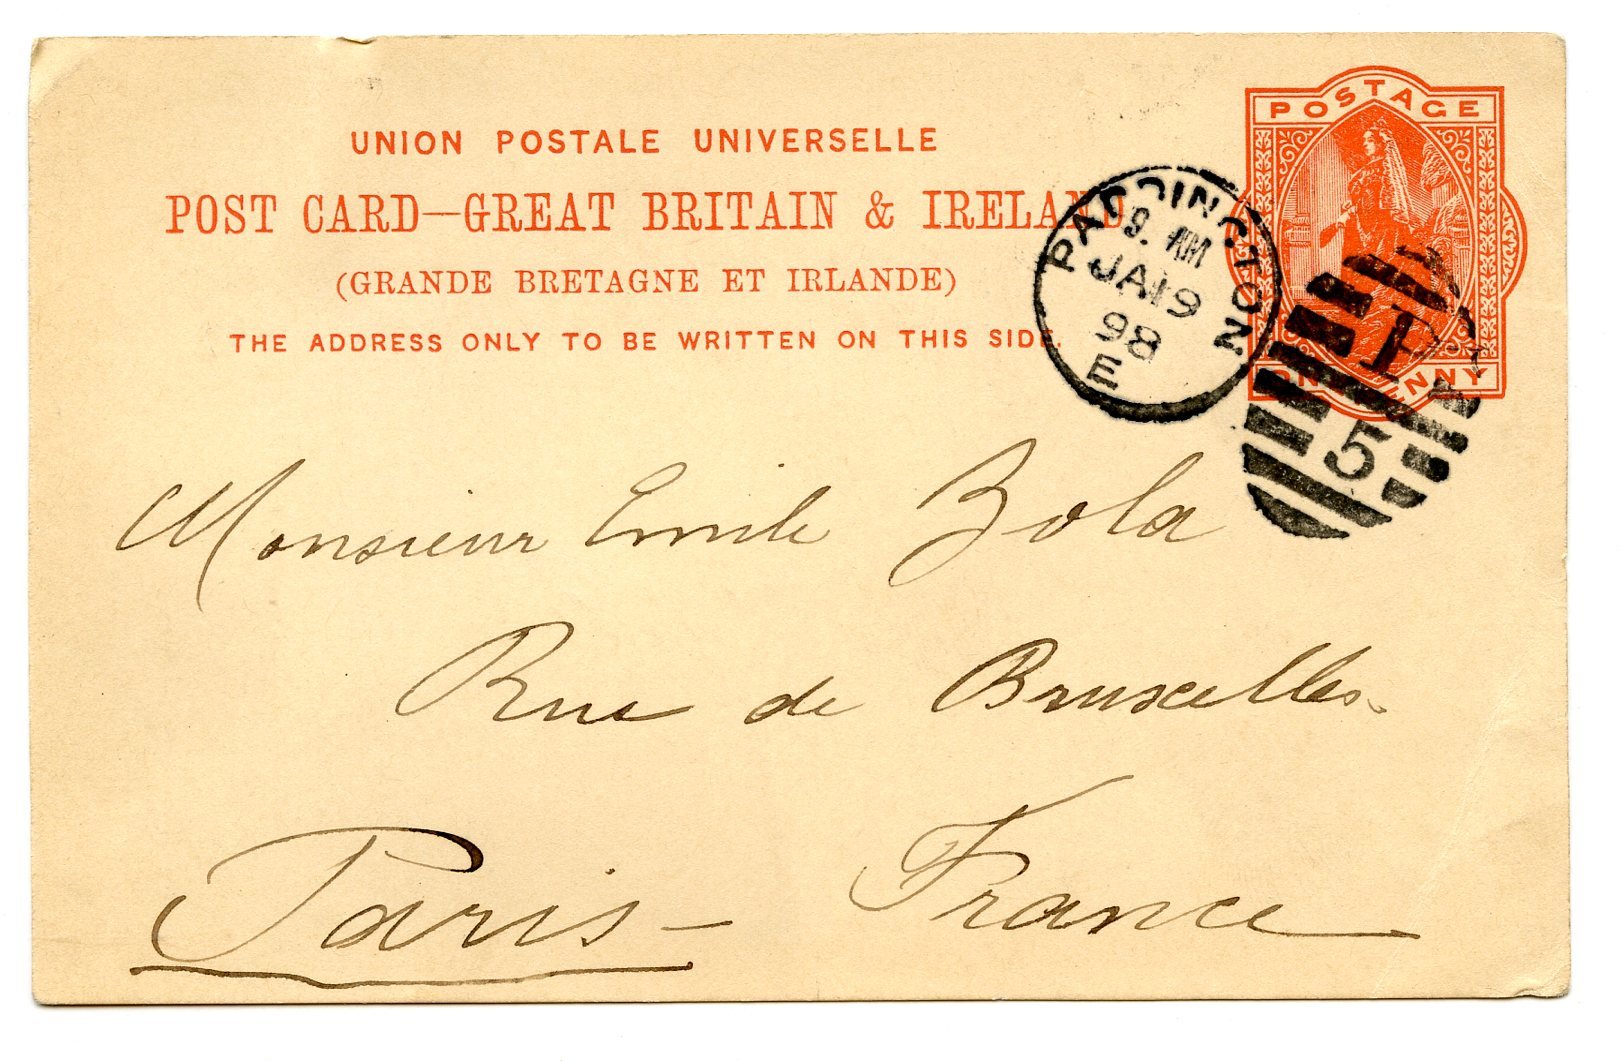 POSTAGE
UNION POSTALE UNIVERSELLE
POST CARD—GREAT BRITAIN & IRELAND
(GRANDE BRETAGNE ET IRLANDE)
THE ADDRESS ONLY TO BE WRITTEN ON THIS SIDE.
PADDINGTON
9. AM
JA 19
98
E
P
5
ONE PENNY
Monsieur Emile Zola
Rue de Bruxelles.
Paris - France